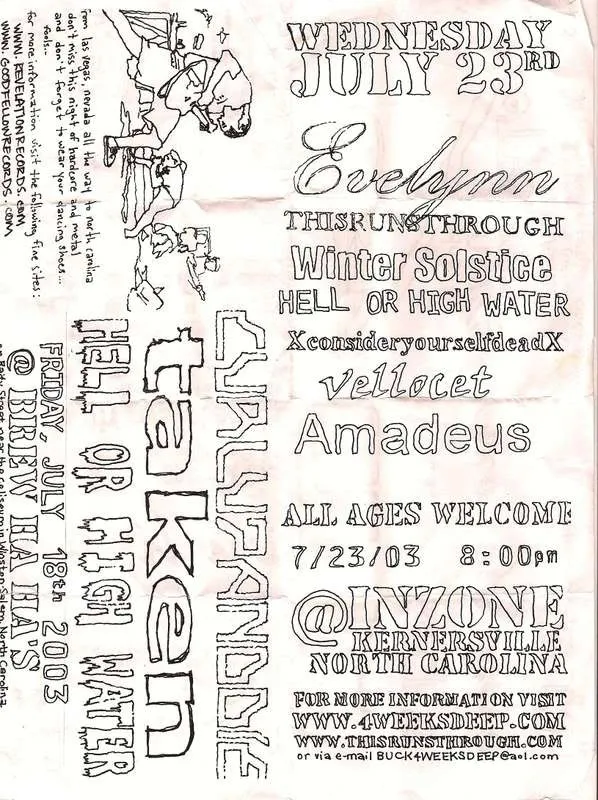 WEDNESDAY
JULY 23RD
Evelynn
THISRUNSTHROUGH
Winter Solstice
HELL OR HIGH WATER
XconsideryourselfdeadX
vellocet
Amadeus
ALL AGES WELCOME
7/23/03 8:00pm
@INZONE
KERNERSVILLE
NORTH CAROLINA
FOR MORE INFORMATION VISIT
WWW.4WEEKSDEEP.COM
WWW.THISRUNSTHROUGH.COM
or via e-mail BUCK4WEEKSDEEP@aol.com
CURLUPANDDIE
taken
HELL OR HIGH WATER
FRIDAY, JULY 18th 2003
@ BREW HA HA'S
on Reidy Street near the coliseum in Winston-Salem, North Carolina
from las vegas, nevada all the way to north carolina
don't miss this night of hardcore and metal
and don't forget to wear your dancing shoes...
fools..
for more information visit the following fine sites:
WWW.REVELATIONRECORDS.COM
WWW.GOODFELLOWRECORDS.COM